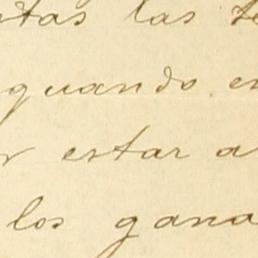 stas las te
quando en
r estar a
los gana